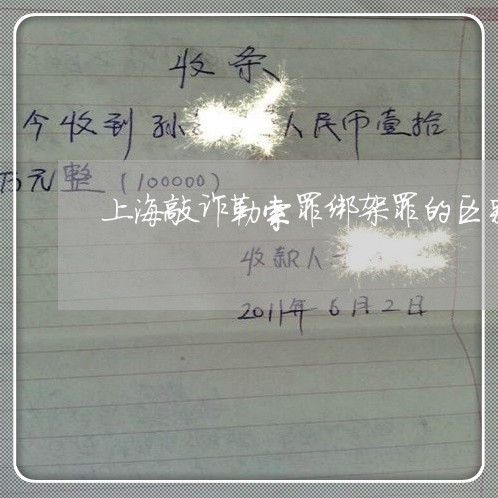 收条
今收到孙 人民币壹拾
万元整(100000)
上海敲诈勒索罪绑架罪的区
收款人
2011年6月2日